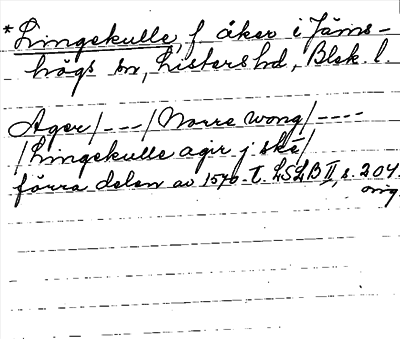 *Lingekulle, f åker i Jäms-
högs sn, Listers hd, Blek. l.
Ager/---/Norre wong/----
/Lingekulle agir j ske/
förra delen av 1570-t. LSLB II, s. 204.
orig.